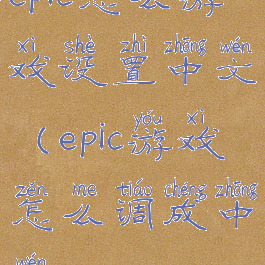 epic怎么游
xì shè zhì zhōng wén
戏设置中文
yóu xì
(epic游戏
zěn me tiáo chéng zhōng
怎么调成中
wén